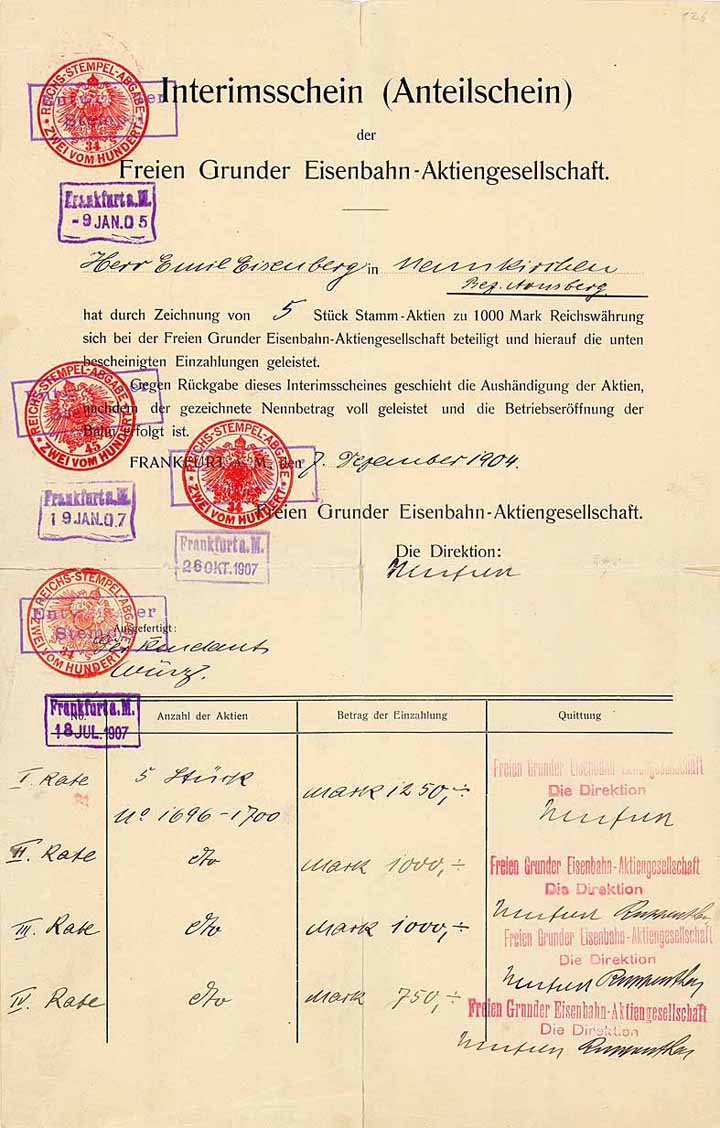 126
Interimsschein (Anteilschein)
der
Freien Grunder Eisenbahn-Aktiengesellschaft.
REICHS-STEMPEL-ABGABE
ZWEI VOM HUNDERT
34
Entw der
Stemp
Frankfurt a. M.
-9 JAN. 05
Herr Emil Eisenberg in Neunkirchen
Bez. Arnsberg
hat durch Zeichnung von 5 Stück Stamm-Aktien zu 1000 Mark Reichswährung
sich bei der Freien Grunder Eisenbahn-Aktiengesellschaft beteiligt und hierauf die unten
bescheinigten Einzahlungen geleistet.
Gegen Rückgabe dieses Interimsscheines geschieht die Aushändigung der Aktien,
nachdem der gezeichnete Nennbetrag voll geleistet und die Betriebseröffnung der
Bahn erfolgt ist.
REICHS-STEMPEL-ABGABE
ZWEI VOM HUNDERT
45
FRANKFURT a. M., den 7. Dezember 1904.
REICHS-STEMPEL-ABGABE
ZWEI VOM HUNDERT
44
Frankfurt a. M.
19 JAN. 07
Freien Grunder Eisenbahn-Aktiengesellschaft.
Frankfurt a. M.
26 OKT. 1907
Die Direktion:
REICHS-STEMPEL-ABGABE
ZWEI VOM HUNDERT
34
Entw der
Stemp
Ausgefertigt:
Der Rendant
Würz.
Frankfurt a. M.
18 JUL. 1907
No. Anzahl der Aktien Betrag der Einzahlung Quittung
I. Rate 5 Stück Mark 1250,÷
No 1696-1700
Freien Grunder Eisenbahn-Aktiengesellschaft
Die Direktion
II. Rate dto Mark 1000,÷
Freien Grunder Eisenbahn-Aktiengesellschaft
Die Direktion
III. Rate dto Mark 1000,÷
Freien Grunder Eisenbahn-Aktiengesellschaft
Die Direktion
IV. Rate dto Mark 750,÷
Freien Grunder Eisenbahn-Aktiengesellschaft
Die Direktion